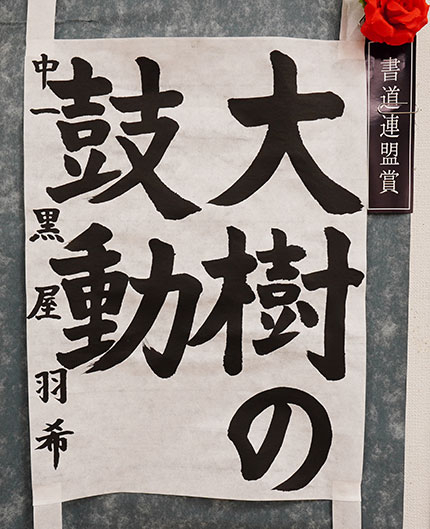 書道連盟賞
大樹の
鼓動
中一 黒屋羽希